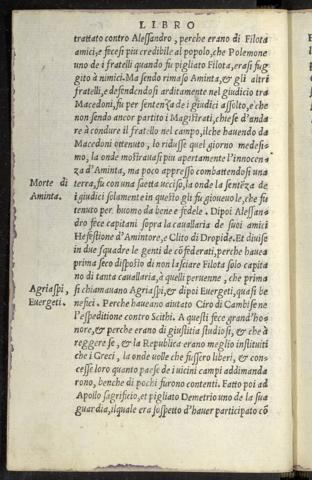 LIBRO
trattato contro Alessandro, perche erano di Filota
amici, e fecesi piu credibile al popolo, che Polemone
uno de i fratelli quando fu pigliato Filota, erasi fug
gito à nimici. Ma sendo rimaso Aminta, & gli altri
fratelli, e defendendosi arditamente nel giudicio tra
Macedoni, fu per sentenza de i giudici assolto, e'che
non sendo ancor partito i Magistrati, chiese d'anda
re à condure il fratello nel campo, ilche hauendo da
Macedoni ottenuto, lo ridusse quel giorno medesi-
mo, la onde mostrauasi piu apertamente l'innocen
za d'Aminta, ma poco appresso combattendosi una
Morte di Aminta.
terra, fu con una saetta ucciso, la onde la sentēza de
i giudici solamente in questo gli fu gioueuole, che fu
tenuto per huomo da bene e fedele. Dipoi Alessan-
dro fece capitani sopra la cauallaria de suoi amici
Hefestione d'Amintore, e Clito di Dropide. Et diuise
in due squadre le genti de cōfederati, perche hauea
prima seco disposto di non lasciare Filota solo capita
no di tanta cauallaria, à quelli peruenne, che prima
Agriaspi, Euergeti.
si chiamauano Agriaspi, & dipoi Euergeti, quasi be
nefici. Perche haueano aiutato Ciro di Cambise ne
l'espeditione contro Scithi. A questi fece grand'ho-
nore, & perche erano di giustitia studiosi, & che à
reggerese, & la Republica erano meglio instituiti
che i Greci, la onde uolle che fussero liberi, & con-
cesse loro quanto paese de i uicini campi addimanda
rono, benche di pochi furono contenti. Fatto poi ad
Apollo sagrificio, et pigliato Demetrio uno de la sua
guardia, ilquale era sospetto d'hauer participato cō